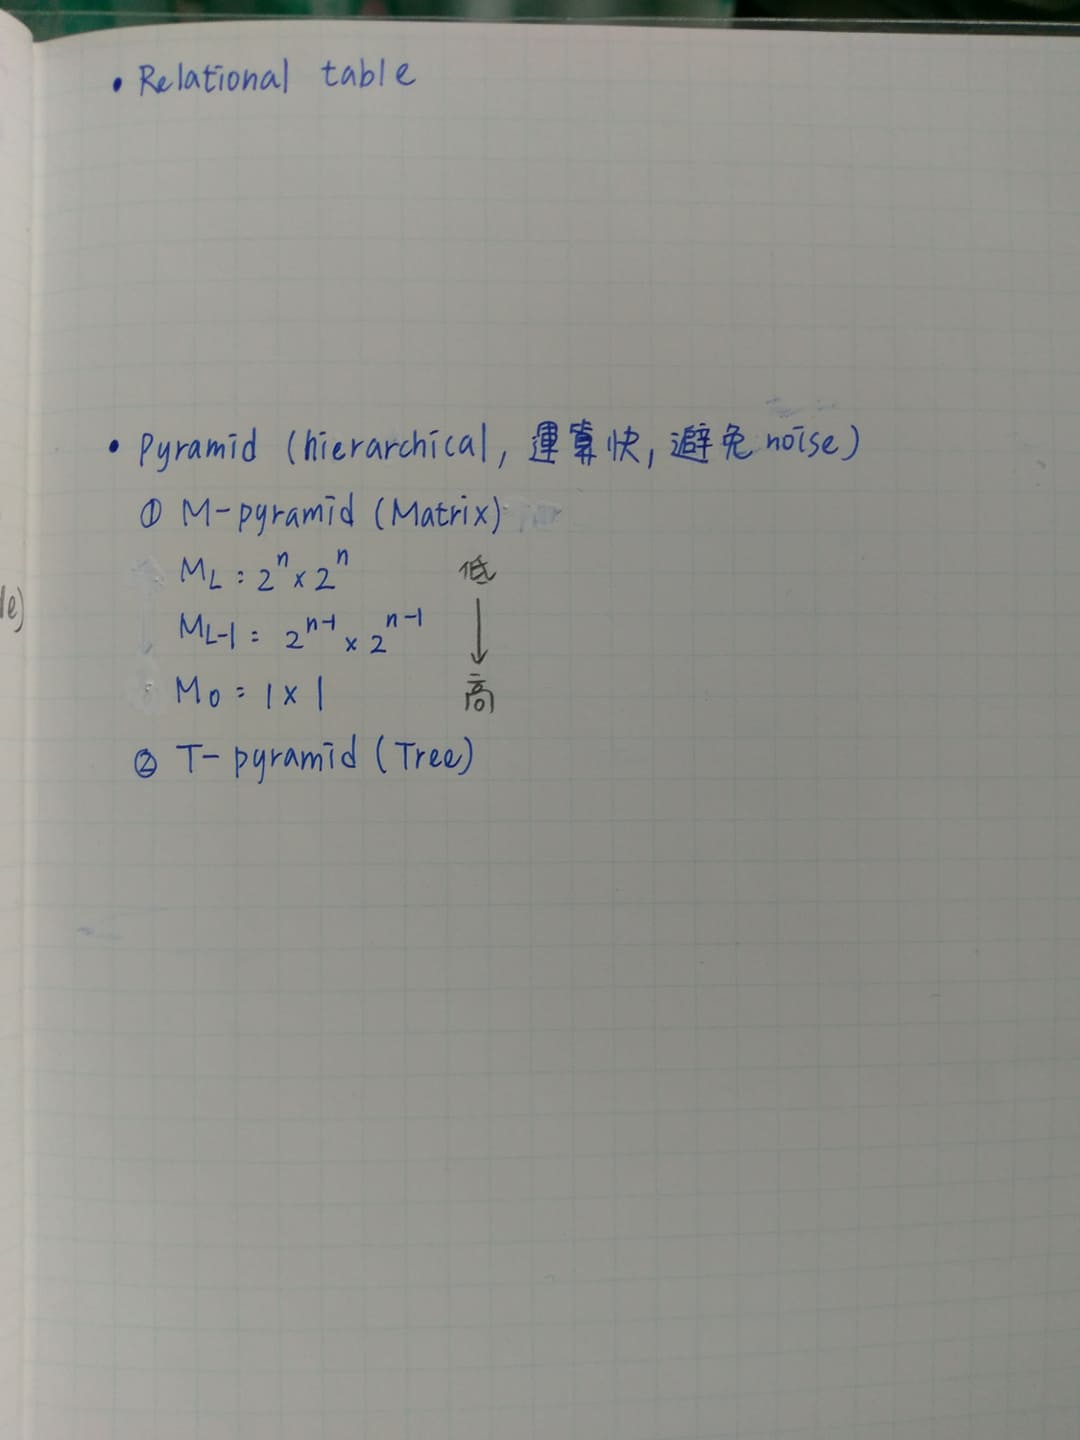 • Relational table
• Pyramid (hierarchical, 運算快, 避免 noise)
① M-pyramid (Matrix)
M_L : 2^n × 2^n 低
M_{L-1} : 2^{n-1} × 2^{n-1} ↓
le)
M_0 : 1 × 1 高
② T-pyramid (Tree)